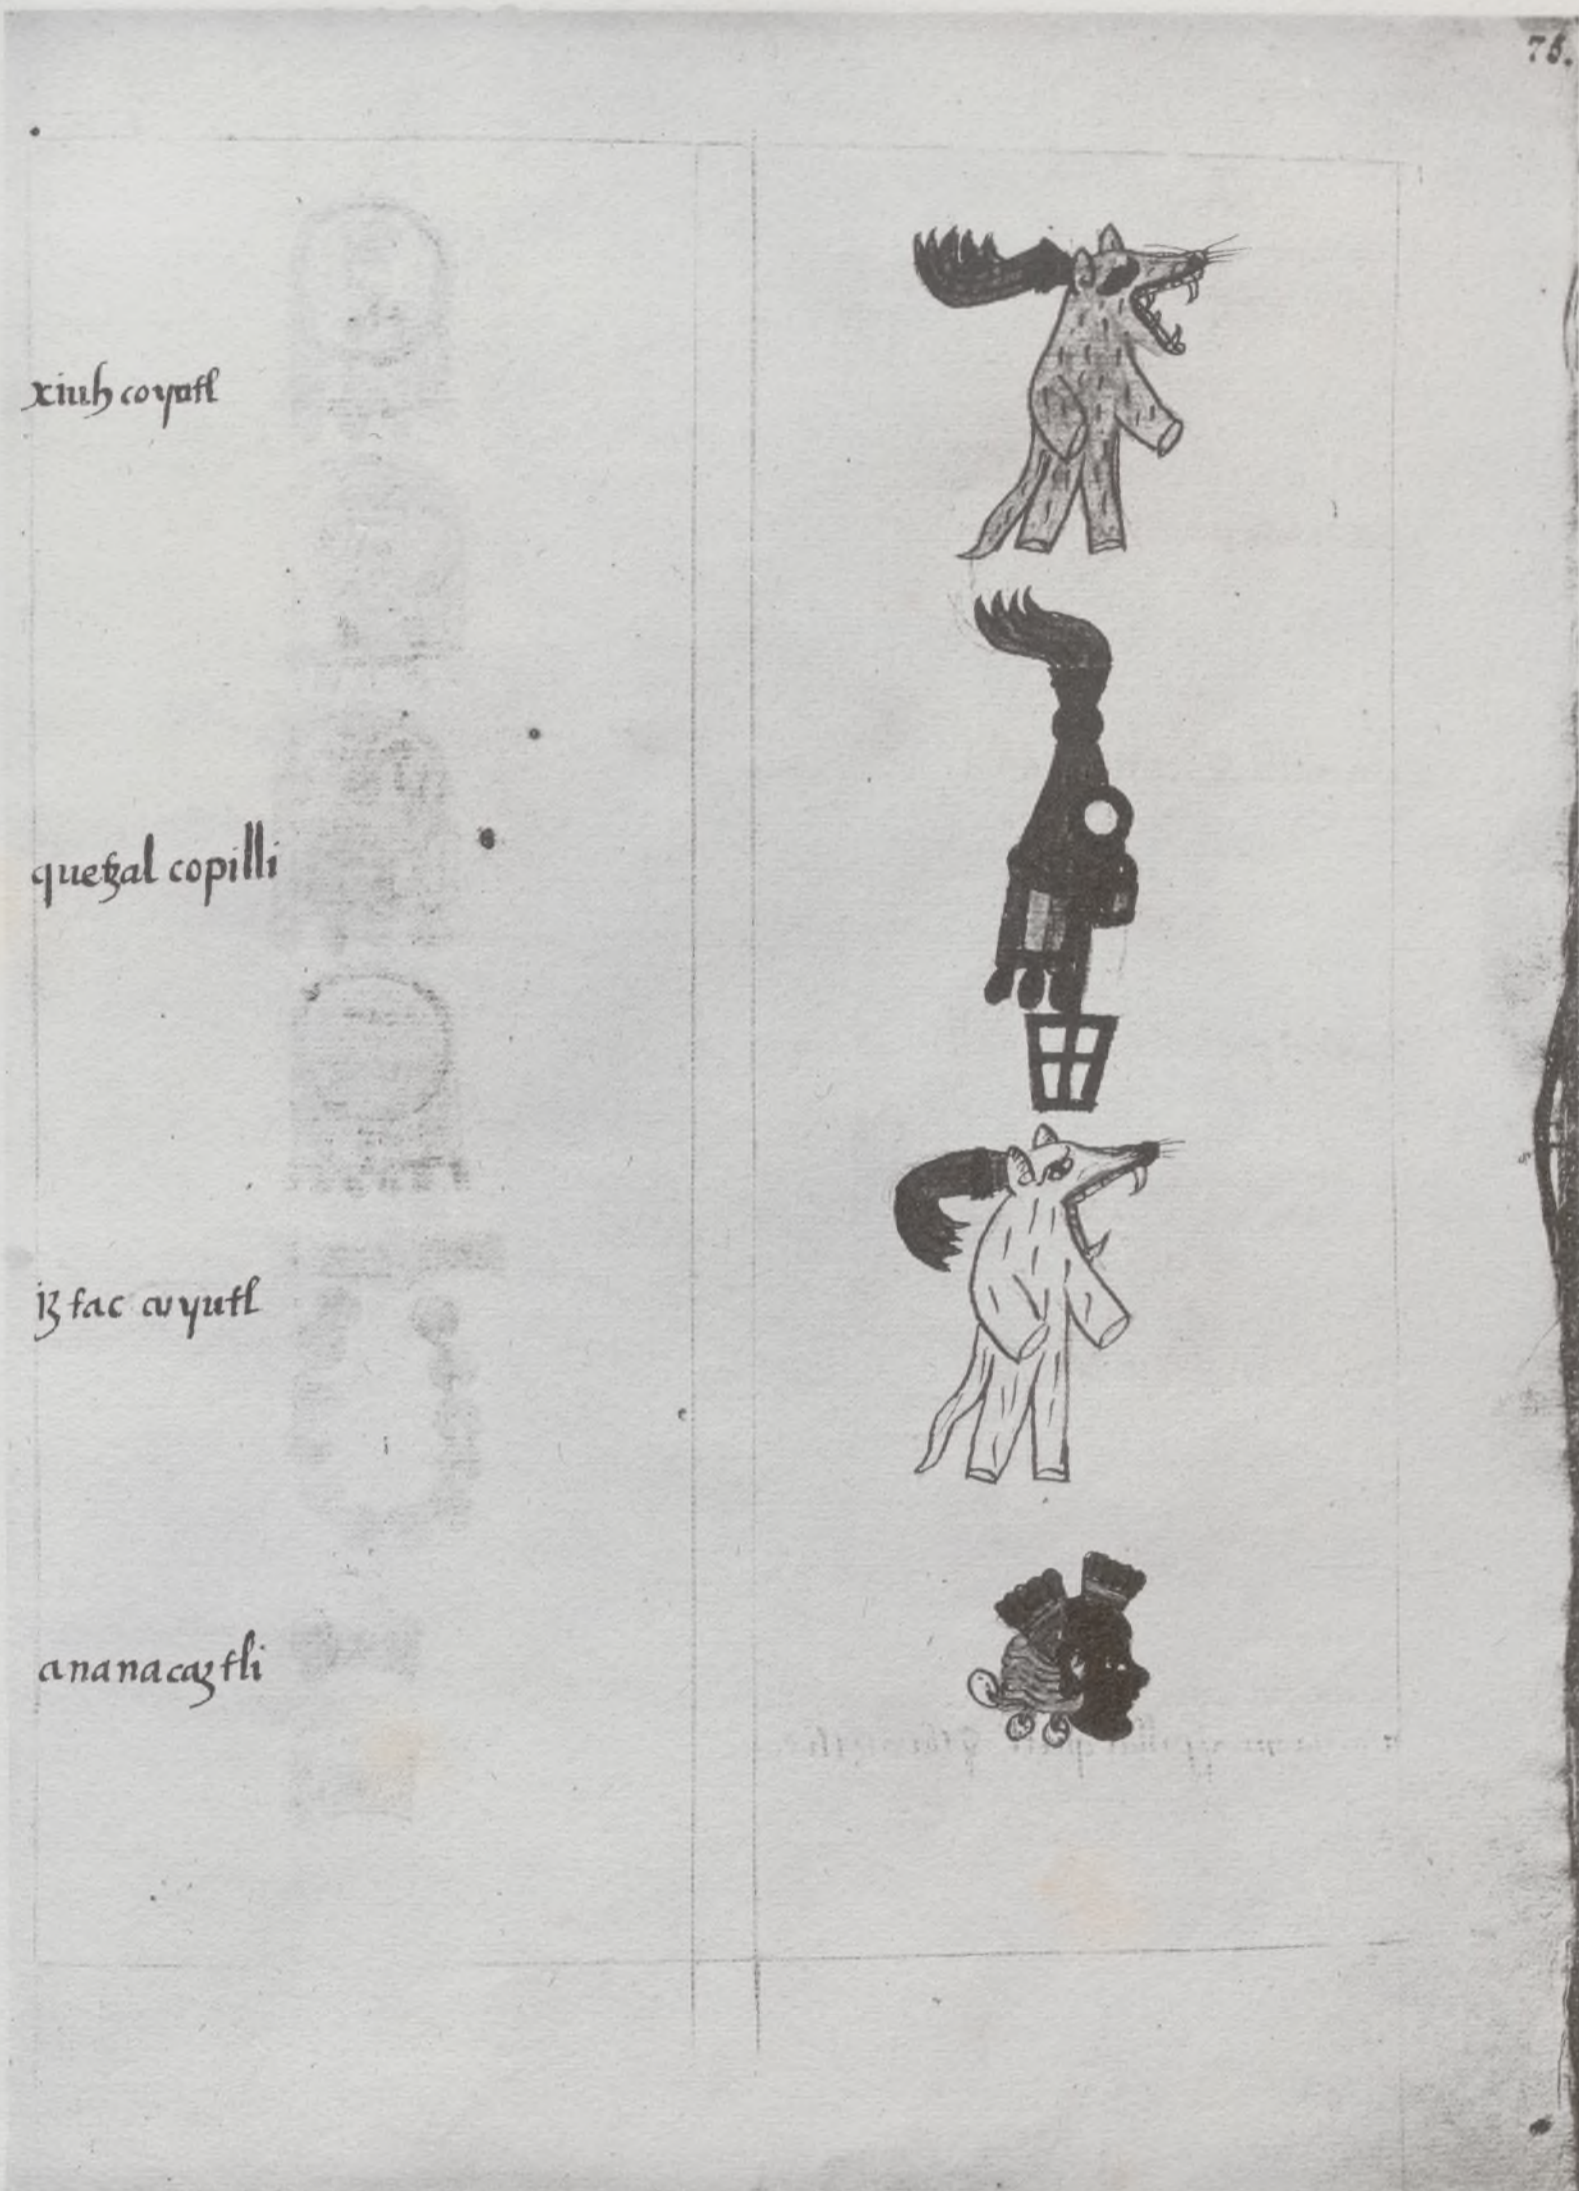 75.
xiuh coyutl
quetzal copilli
iztac cuyutl
ananacaztli